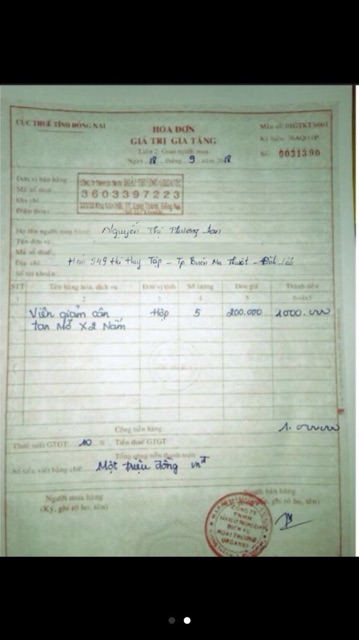 CỤC THUẾ TỈNH ĐỒNG NAI
HÓA ĐƠN
GIÁ TRỊ GIA TĂNG
Liên 2: Giao người mua
Ngày 18 tháng 9 năm 2018
Mẫu số: 01GTKT3/001
Số: 0031390
Đơn vị bán hàng
Mã số thuế
3603397223
Địa chỉ
Điện thoại
Họ tên người mua hàng Nguyễn Thị Thương Lan
Tên đơn vị
Mã số thuế
Địa chỉ Hẻm 549 Tp Buôn Ma Thuột - Đắk Lắk
Số tài khoản
STT Tên hàng hóa, dịch vụ Đơn vị tính Số lượng Đơn giá Thành tiền
1 2 3 4 5
Viên giảm cân Hộp 5 200.000 1000.000
tan Mỡ X2 Nấm
Cộng tiền hàng 1.000.000
Thuế suất GTGT: 10 % Tiền thuế GTGT
Tổng cộng tiền thanh toán
Số tiền viết bằng chữ: Một triệu đồng
Người mua hàng Người bán hàng
(Ký, ghi rõ họ, tên) (Ký, ghi rõ họ, tên)